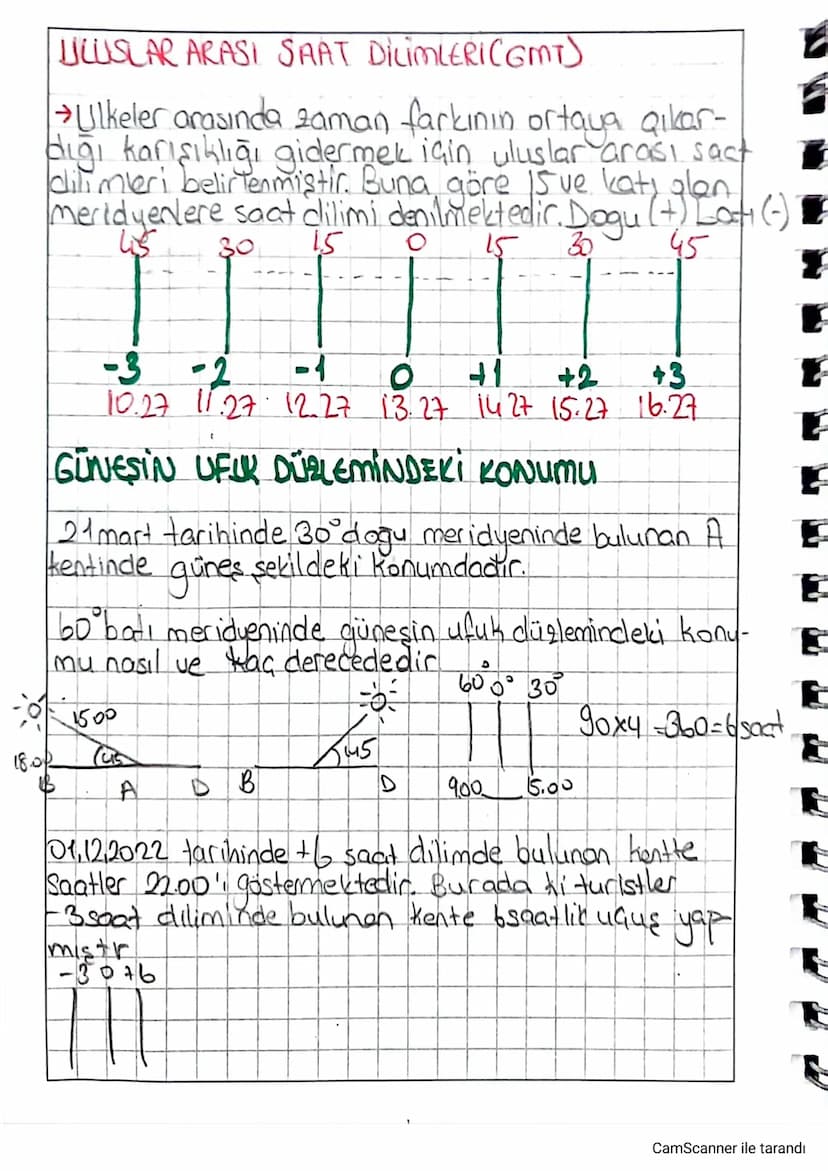 ULUSLAR ARASI SAAT DİLİMLERİ(GMT)
→Ulkeler arasında zaman farkının ortaya çıkar-
dığı karışıklığı gidermek için uluslar arası saat
dilimleri belirlenmiştir. Buna göre 15 ve katı olan
meridyenlere saat dilimi denilmektedir. Dogu (+) Batı (-)
45 30 15 0 15 30 45
-3 -2 -1 0 +1 +2 +3
10.27 11.27 12.27 13.27 14 27 15.27 16.27
GÜNEŞİN UFUK DÜZLEMİNDEKİ KONUMU
21 mart tarihinde 30° doğu meridyeninde bulunan A
kentinde güneş şekildeki konumdadır.
60° batı meridyeninde güneşin ufuk düzlemindeki konu-
mu nasıl ve kaç derecededir
60° 0° 30°
1500
90x4 =360=6 saat
18.00 45 45
B A D B D 900 15.00
01.12.2022 tarihinde +6 saat dilimde bulunan kentte
Saatler 22.00'ı göstermektedir. Burada ki turistler
-3 saat diliminde bulunan kente 6 saatlik uçuş yap
mıştr
-3 0 +6
CamScanner ile tarandı